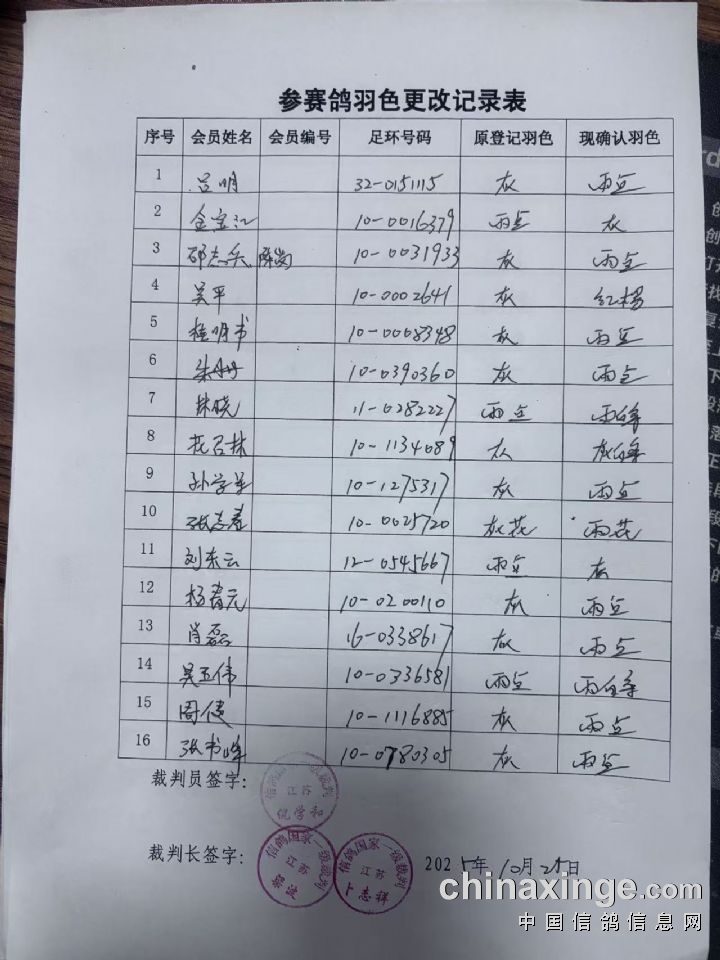 参赛鸽羽色更改记录表
序号 会员姓名 会员编号 足环号码 原登记羽色 现确认羽色
1 吕明 32-0151115 灰 雨点
2 金宝江 10-0016379 雨点 灰
3 邵志兵 陈岗 10-0031933 灰 雨点
4 吴平 10-0002641 灰 红楞
5 桂明书 10-0008348 灰 雨点
6 朱丹 10-0390360 灰 雨点
7 林晓 11-0282227 雨点 雨白条
8 花召林 10-1134089 灰 灰白条
9 孙学军 10-1275317 灰 雨点
10 张志春 10-0025720 灰花 雨花
11 刘东云 12-0545667 雨点 灰
12 杨春元 10-0200110 灰 雨点
13 肖磊 16-0338617 灰 雨点
14 吴玉伟 10-0336581 雨点 雨白条
15 周健 10-1116885 灰 雨点
16 张书峰 10-0780305 灰 雨点
裁判员签字:
江苏
倪学和
裁判长签字:
信鸽国家一级裁判
江苏
信鸽国家一级裁判
江苏
卜志祥
10月25日
chinaxinge.com
中国信鸽信息网